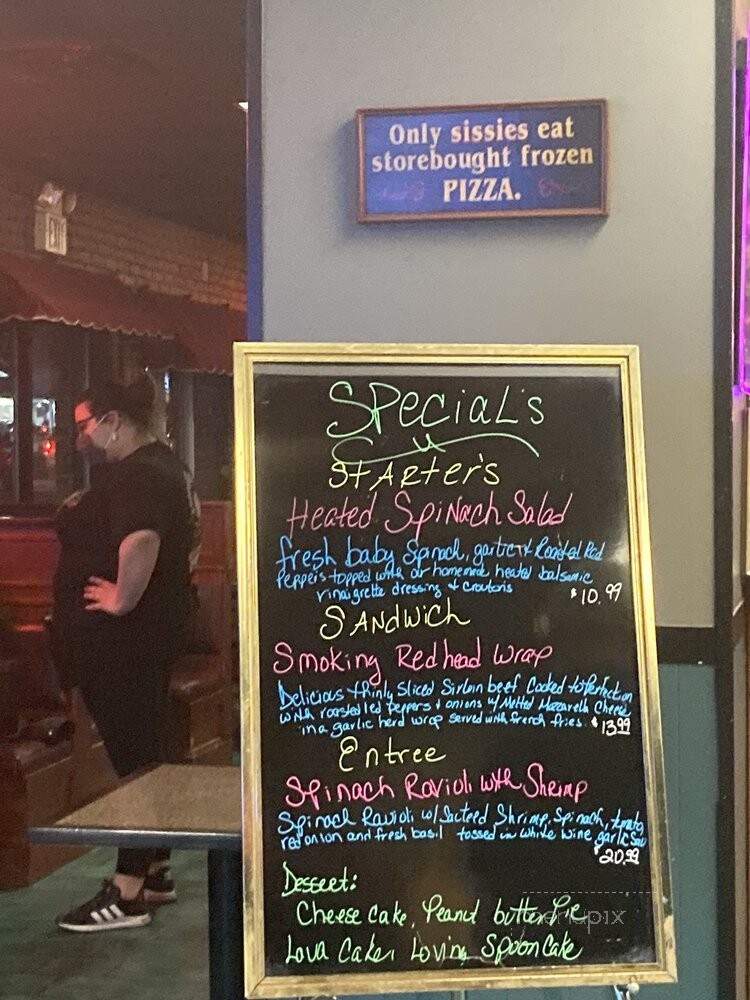 EXIT
Only sissies eat
storebought frozen
PIZZA.
SPecial's
StARter's
Heated Spinach Salad
fresh baby Spinach, garlic & Roasted Red
Peppers topped with our homemade heated balsamic
vinaigrette dressing & croutons
$10.99
SANdwich
Smoking Redhead Wrap
Delicious thinly Sliced Sirloin beef Cooked to Perfection
with roasted red peppers & onions w/ Melted Mozzarella Cheese
in a garlic herb wrap served with french fries. $13.99
Entree
Spinach Ravioli with Shrimp
Spinach Ravioli w/ Shrimp, Spinach, tomato,
red onion and fresh basil tossed in white wine garlic
$20.99
Dessert:
Cheese Cake, Peanut butter Pie
Lava Cake, Loving Spoon Cake
menupix